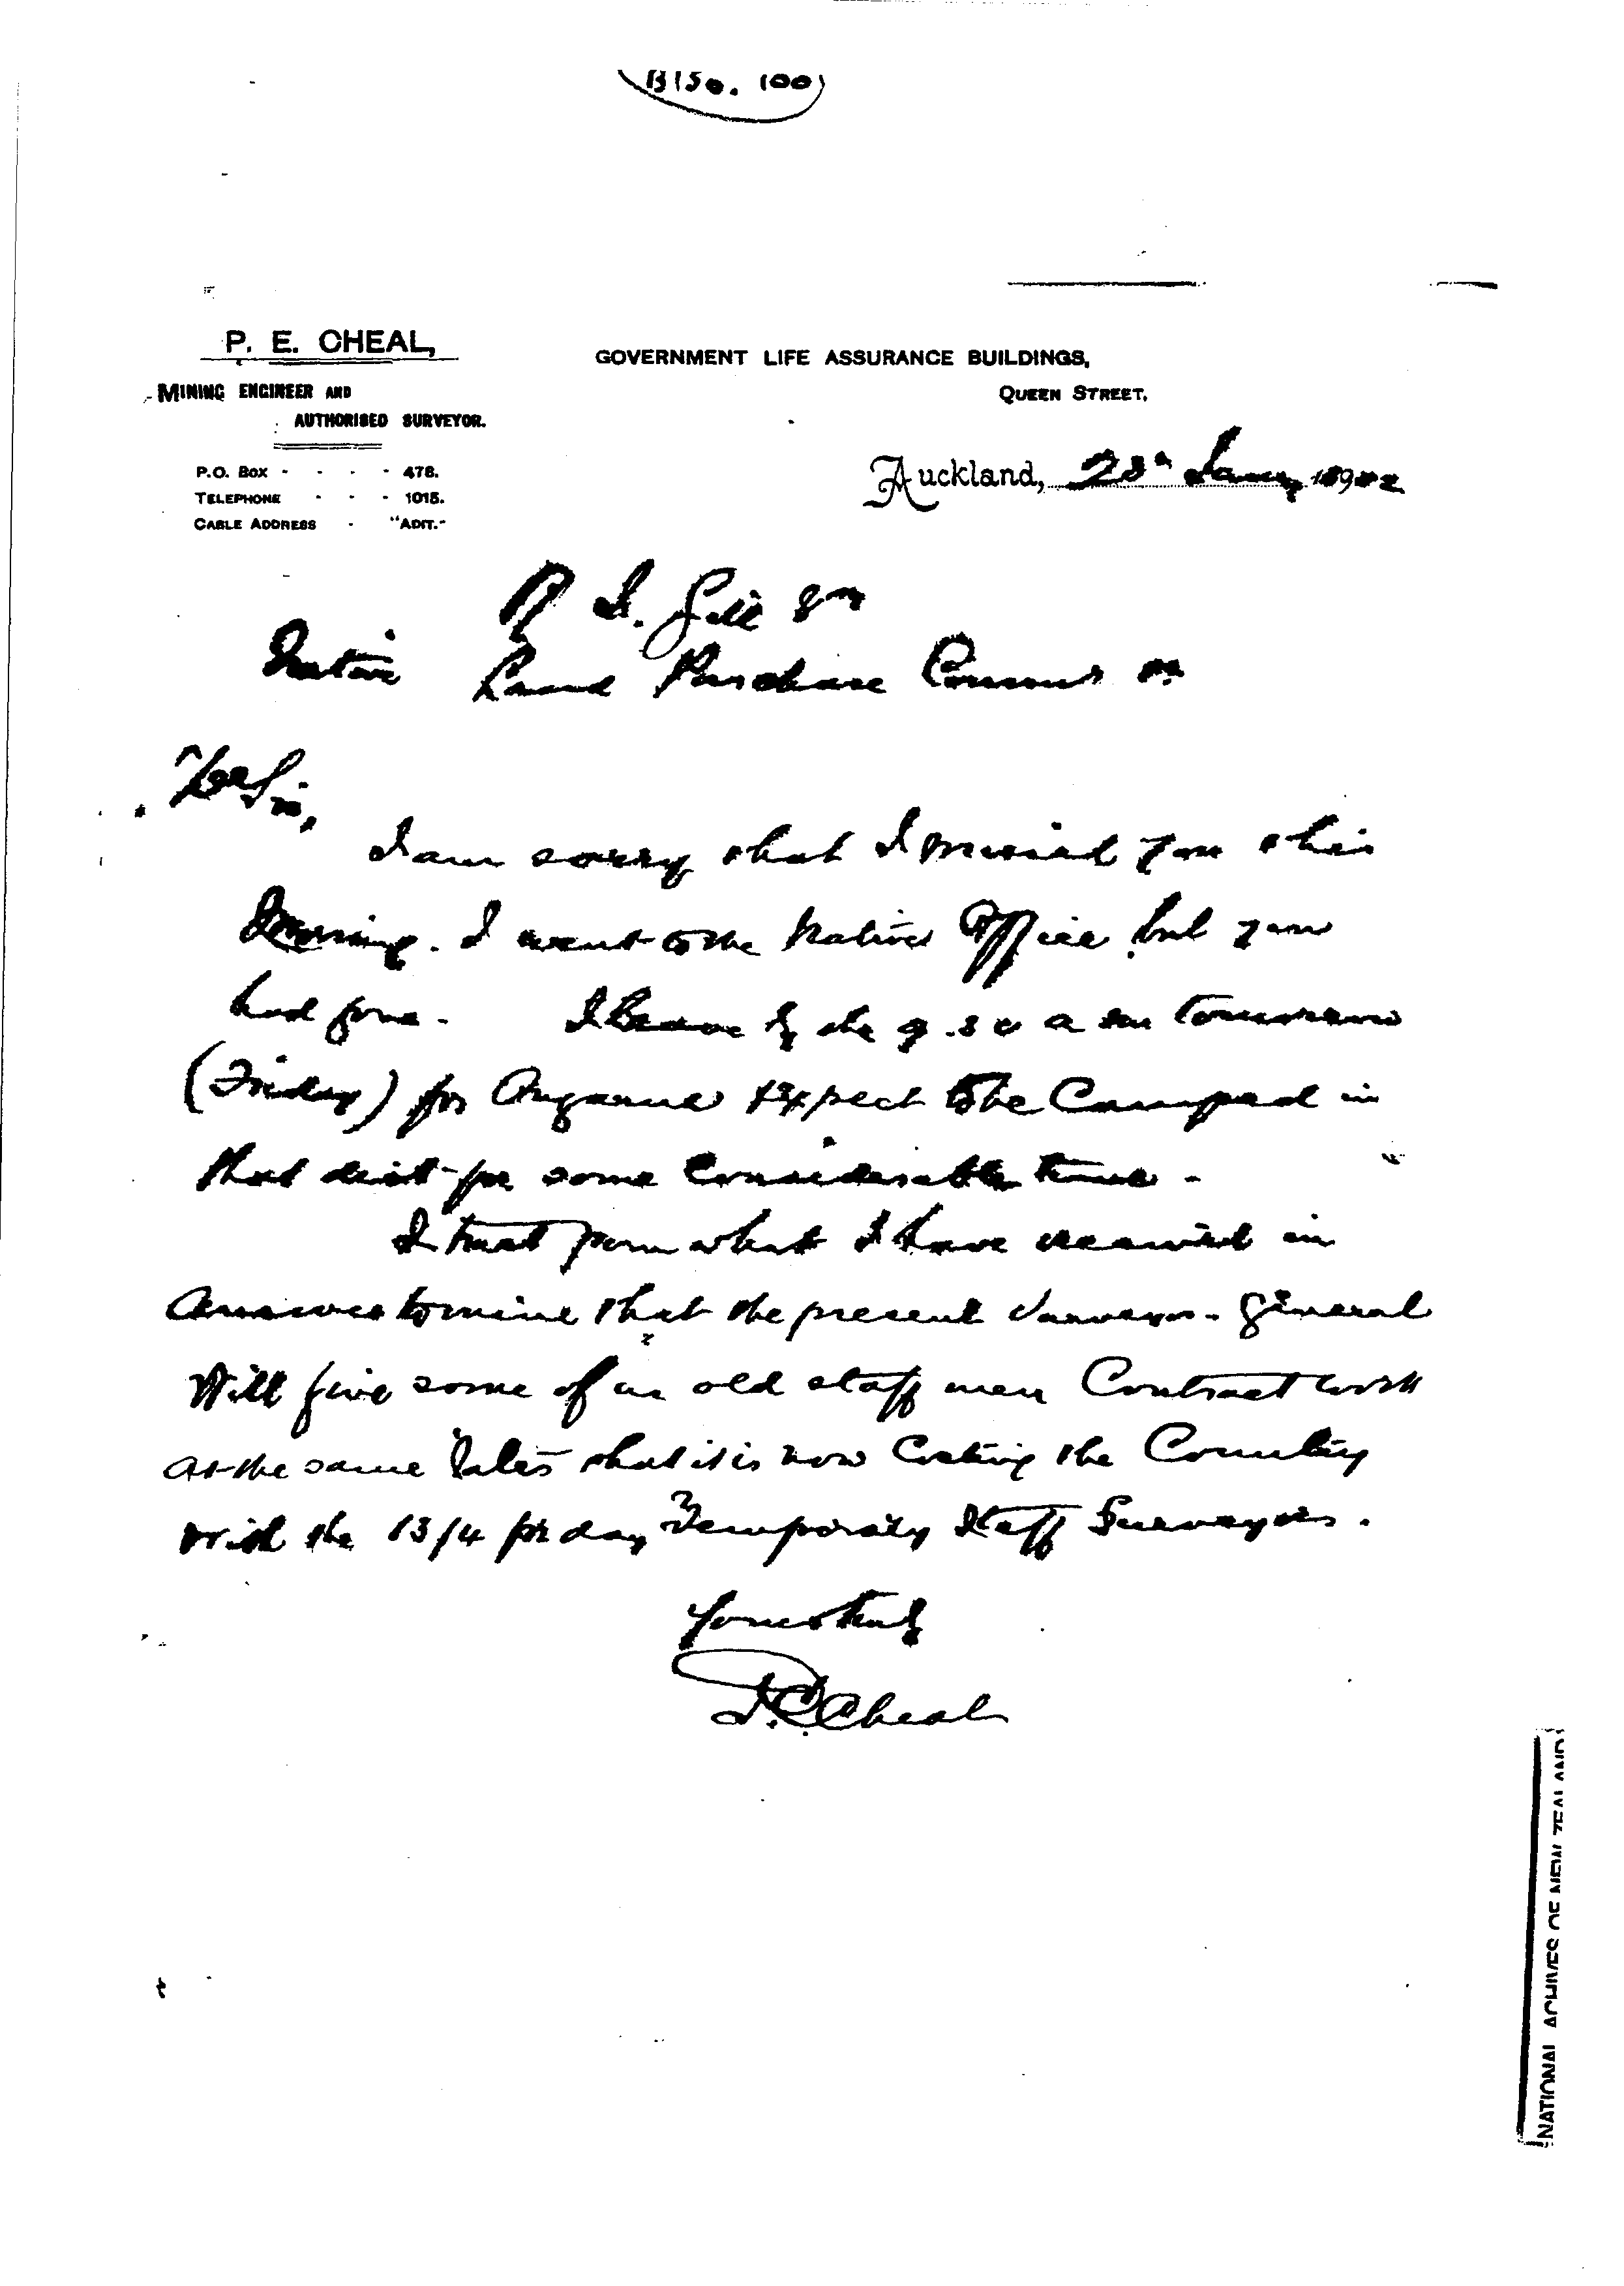 B150. 100
P. E. CHEAL,
MINING ENGINEER AND
AUTHORISED SURVEYOR.
P.O. BOX - - - - 478.
TELEPHONE - - - 1015.
CABLE ADDRESS - "ADIT."
GOVERNMENT LIFE ASSURANCE BUILDINGS,
QUEEN STREET,
Auckland, 23rd Jany 1902
P. S. Gill Esq
Native Land Purchase Commr
Dr Sir,
I am sorry that I missed you this
morning. I went to the Native Office but you
had gone. I leave by the 9.20 a m tomorrow
(Friday) for Ongarue & expect to be Camped in
that dist for some Considerable time -
I trust from what I have received in
Answer to mine that the present Surveyor-General
Will give some of us old staff men Contract work
at the same rates that it is now Costing the Country
with the 13/4 per day Temporary Staff Surveyors.
Yours truly
P.E. Cheal
NATIONAL ARCHIVES OF NEW ZEALAND